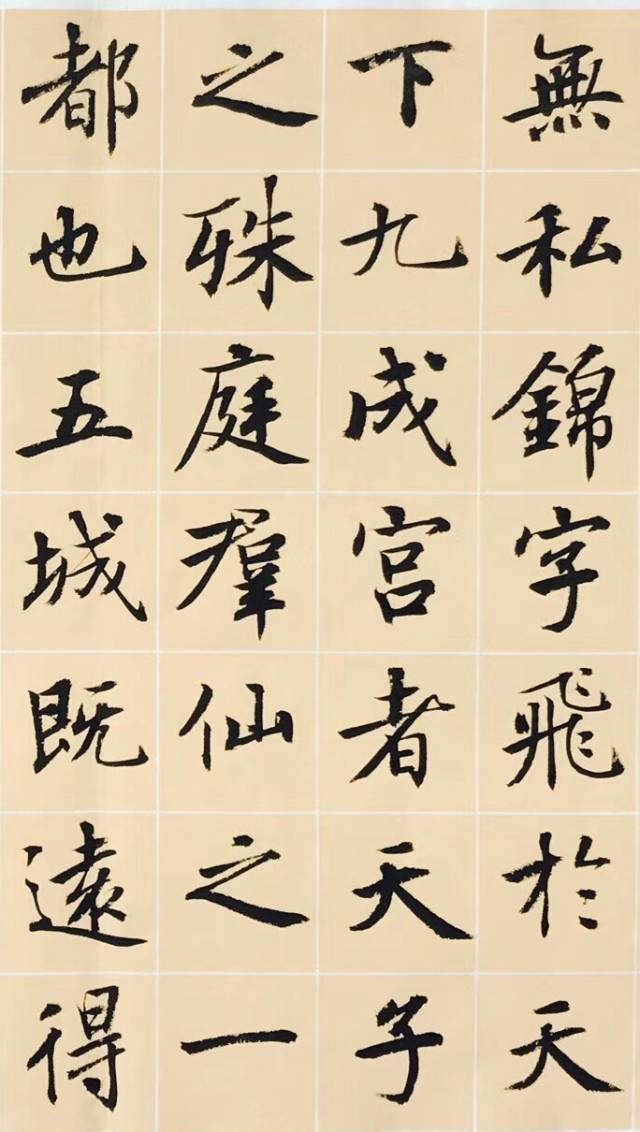 無私錦字飛於天
下九成宫者天子
之殊庭羣仙之一
都也五城既遠得